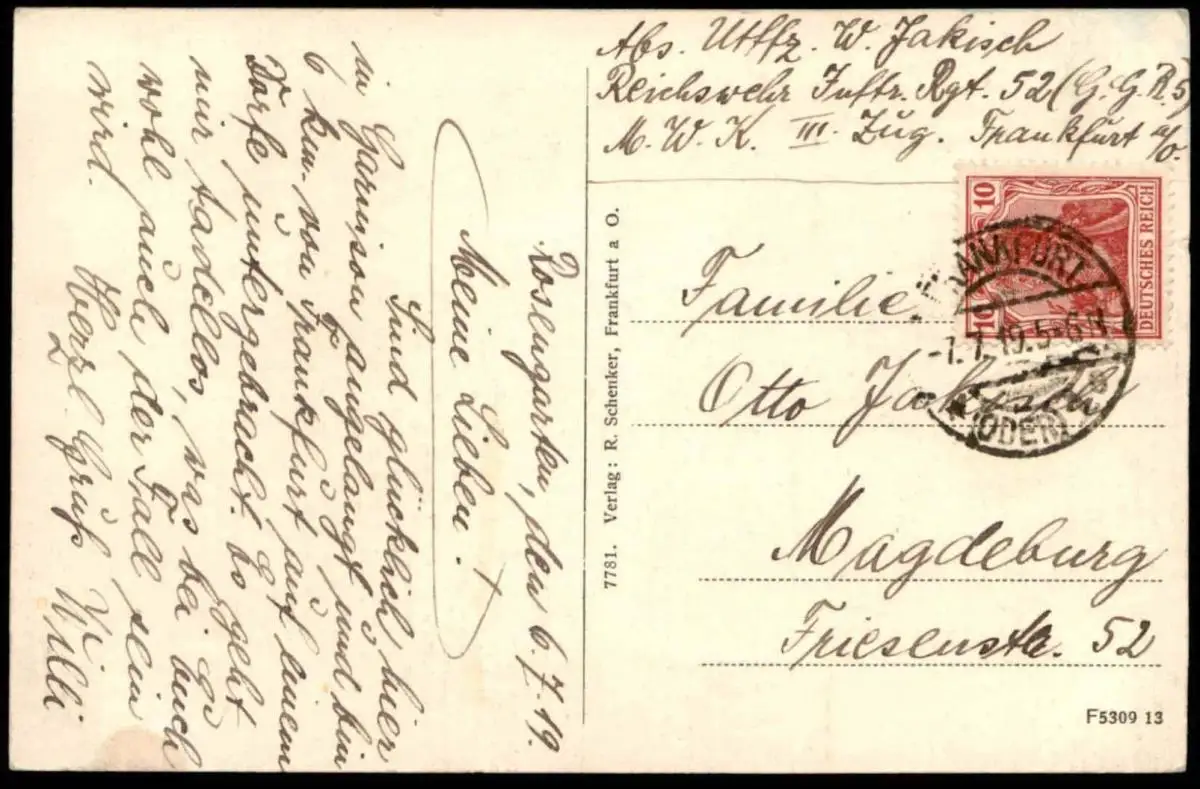 Abs. Utffz. W. Jakisch
Reichswehr Inftr. Rgt. 52 (G. G. R. 5)
M. W. K. III Zug. Frankfurt a/O.
10
10
DEUTSCHES REICH
FRANKFURT
-7.7.19.5-6N.
(ODER)
Familie
Otto Jakisch
Magdeburg
Friesenstr. 52
F5309 13
7781. Verlag: R. Schenker, Frankfurt a O.
Rosengarten, den 6.7.19.
Meine Lieben.
Sind glücklich hier
in Garnison angelangt und bin
6 km. von Frankfurt auf einem
Dorfe untergebracht. Es geht
mir tadellos, was bei Euch
wohl auch der Fall sein
wird. Herzl. Gruß Willi